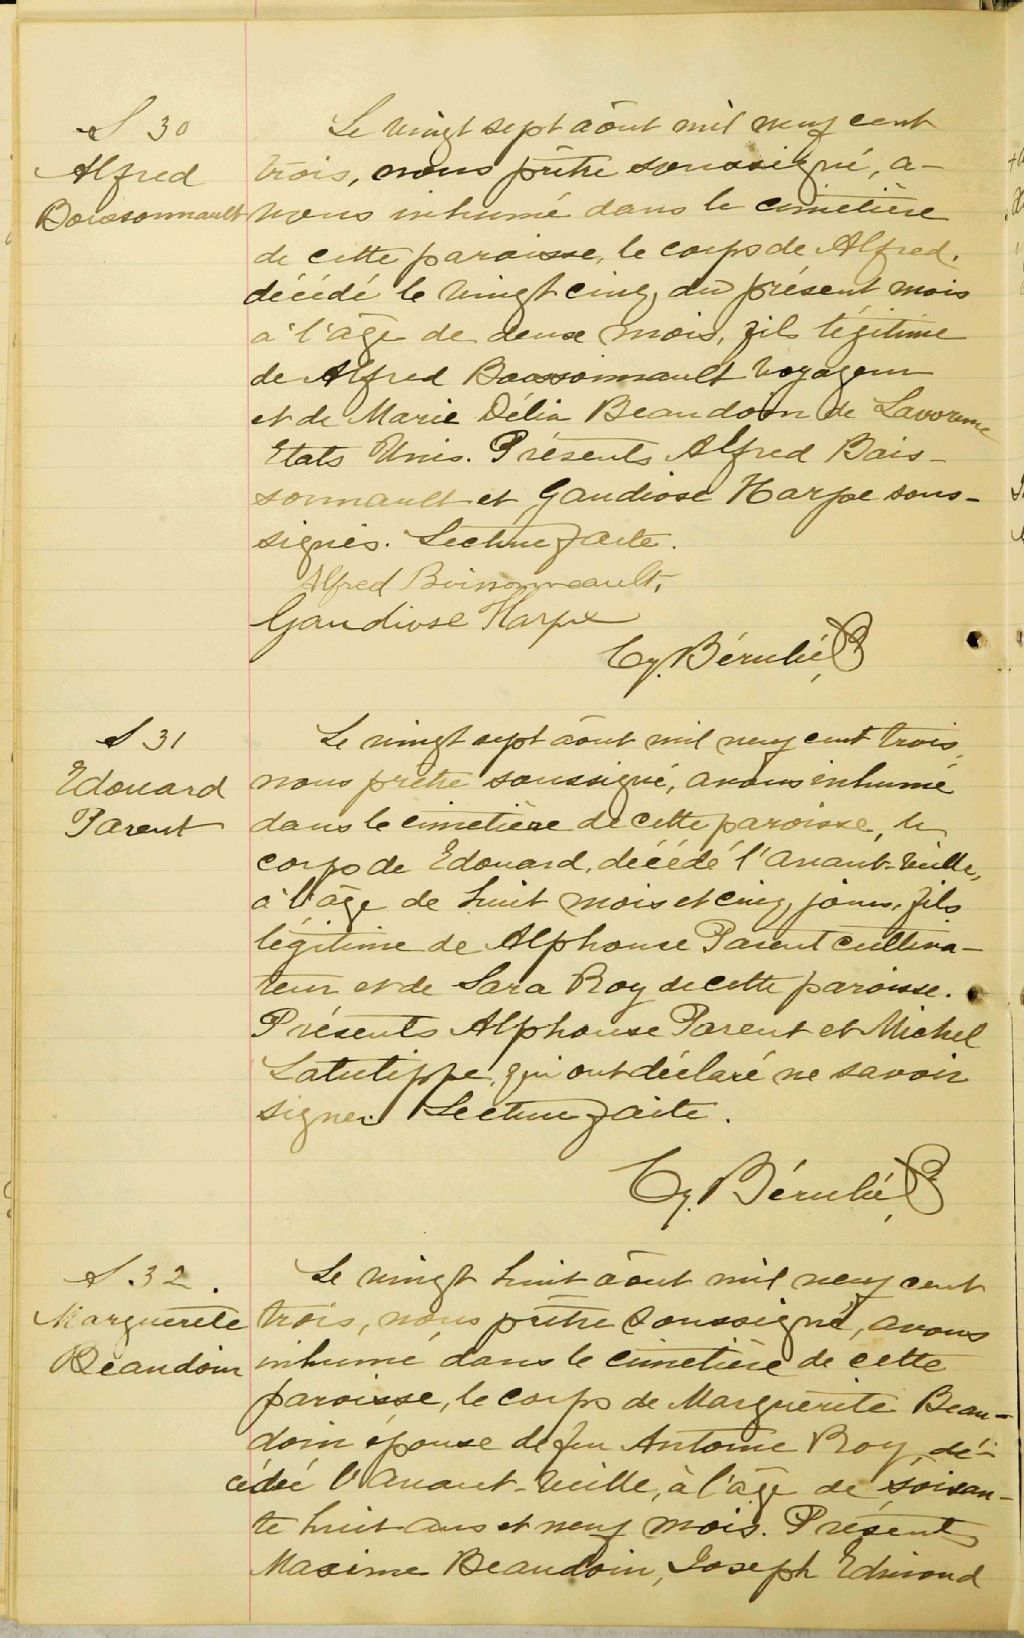 S 30
Alfred
Boissonnault
Le vingt sept août mil neuf cent
trois, nous prêtre soussigné, a-
vons inhumé dans le cimetière
de cette paroisse, le corps de Alfred,
décédé le vingt cinq, du présent mois
à l'âge de deux mois, fils légitime
de Alfred Boissonnault voyageur
et de Marie Délia Beaudoin de
Etats Unis. Présents Alfred Bois-
sonnault et Gaudiose Harpe sous-
signés. Lecture faite.
Alfred Boissonneault,
Gaudiose Harpe
Cy. Bérubé, P
S 31
Edouard
Parent
Le vingt sept août mil neuf cent trois,
nous prêtre soussigné, avons inhumé
dans le cimetière de cette paroisse, le
corps de Edouard, décédé l'avant-veille,
à l'âge de huit mois et cinq jours, fils
légitime de Alphonse Parent cultiva-
teur et de Sara Roy de cette paroisse.
Présents Alphonse Parent et Michel
Latulippe, qui ont déclaré ne savoir
signer. Lecture faite.
Cy. Bérubé, P
S. 32.
Marguerite
Beaudoin
Le vingt huit août mil neuf cent
trois, nous prêtre soussigné, avons
inhumé dans le cimetière de cette
paroisse, le corps de Marguerite Beau-
doin épouse de feu Antoine Roy, dé-
cédée l'avant-veille, à l'âge de soixan-
te huit ans et neuf mois. Présents
Maxime Beaudoin, Joseph Edmond